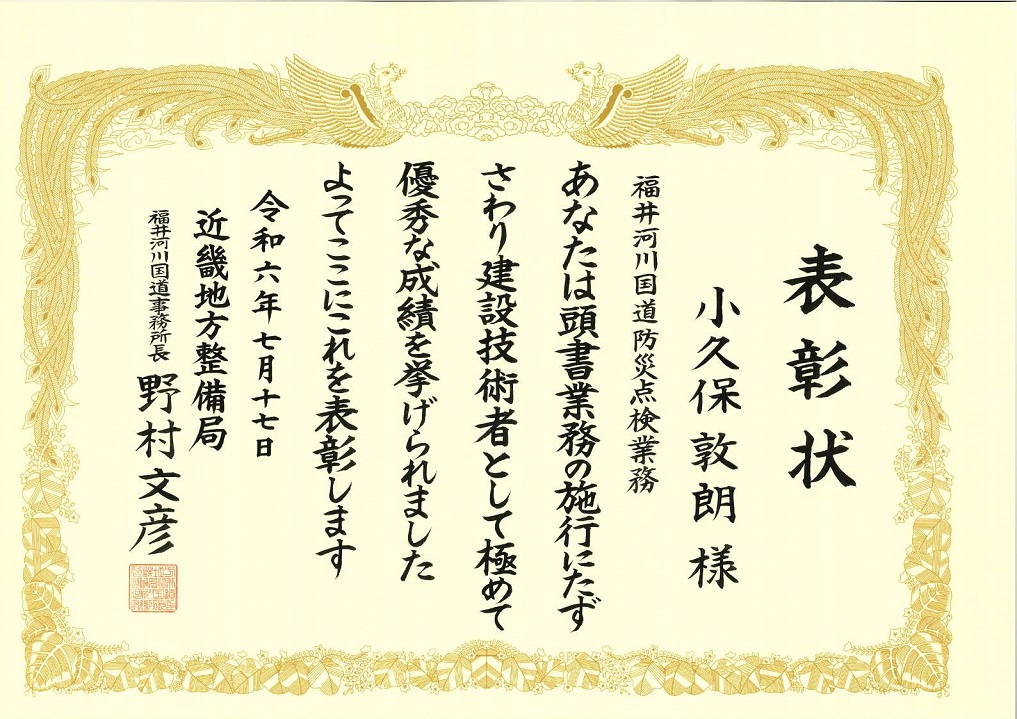 表彰状
小久保敦朗様
福井河川国道防災点検業務
あなたは頭書業務の施行にたず
さわり建設技術者として極めて
優秀な成績を挙げられました
よってここにこれを表彰します
令和六年七月十七日
近畿地方整備局
福井河川国道事務所長 野村文彦